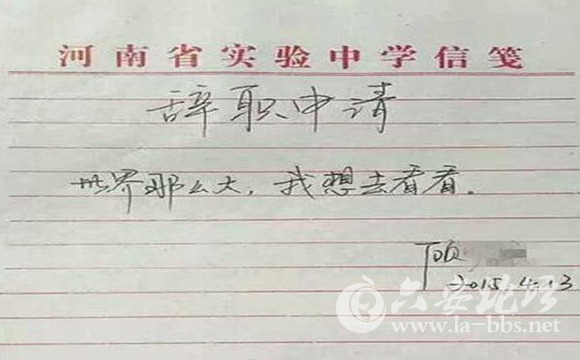 河南省实验中学信笺
辞职申请
世界那么大，我想去看看.
顾
2015.4.13
六安论坛
www.la-bbs.net